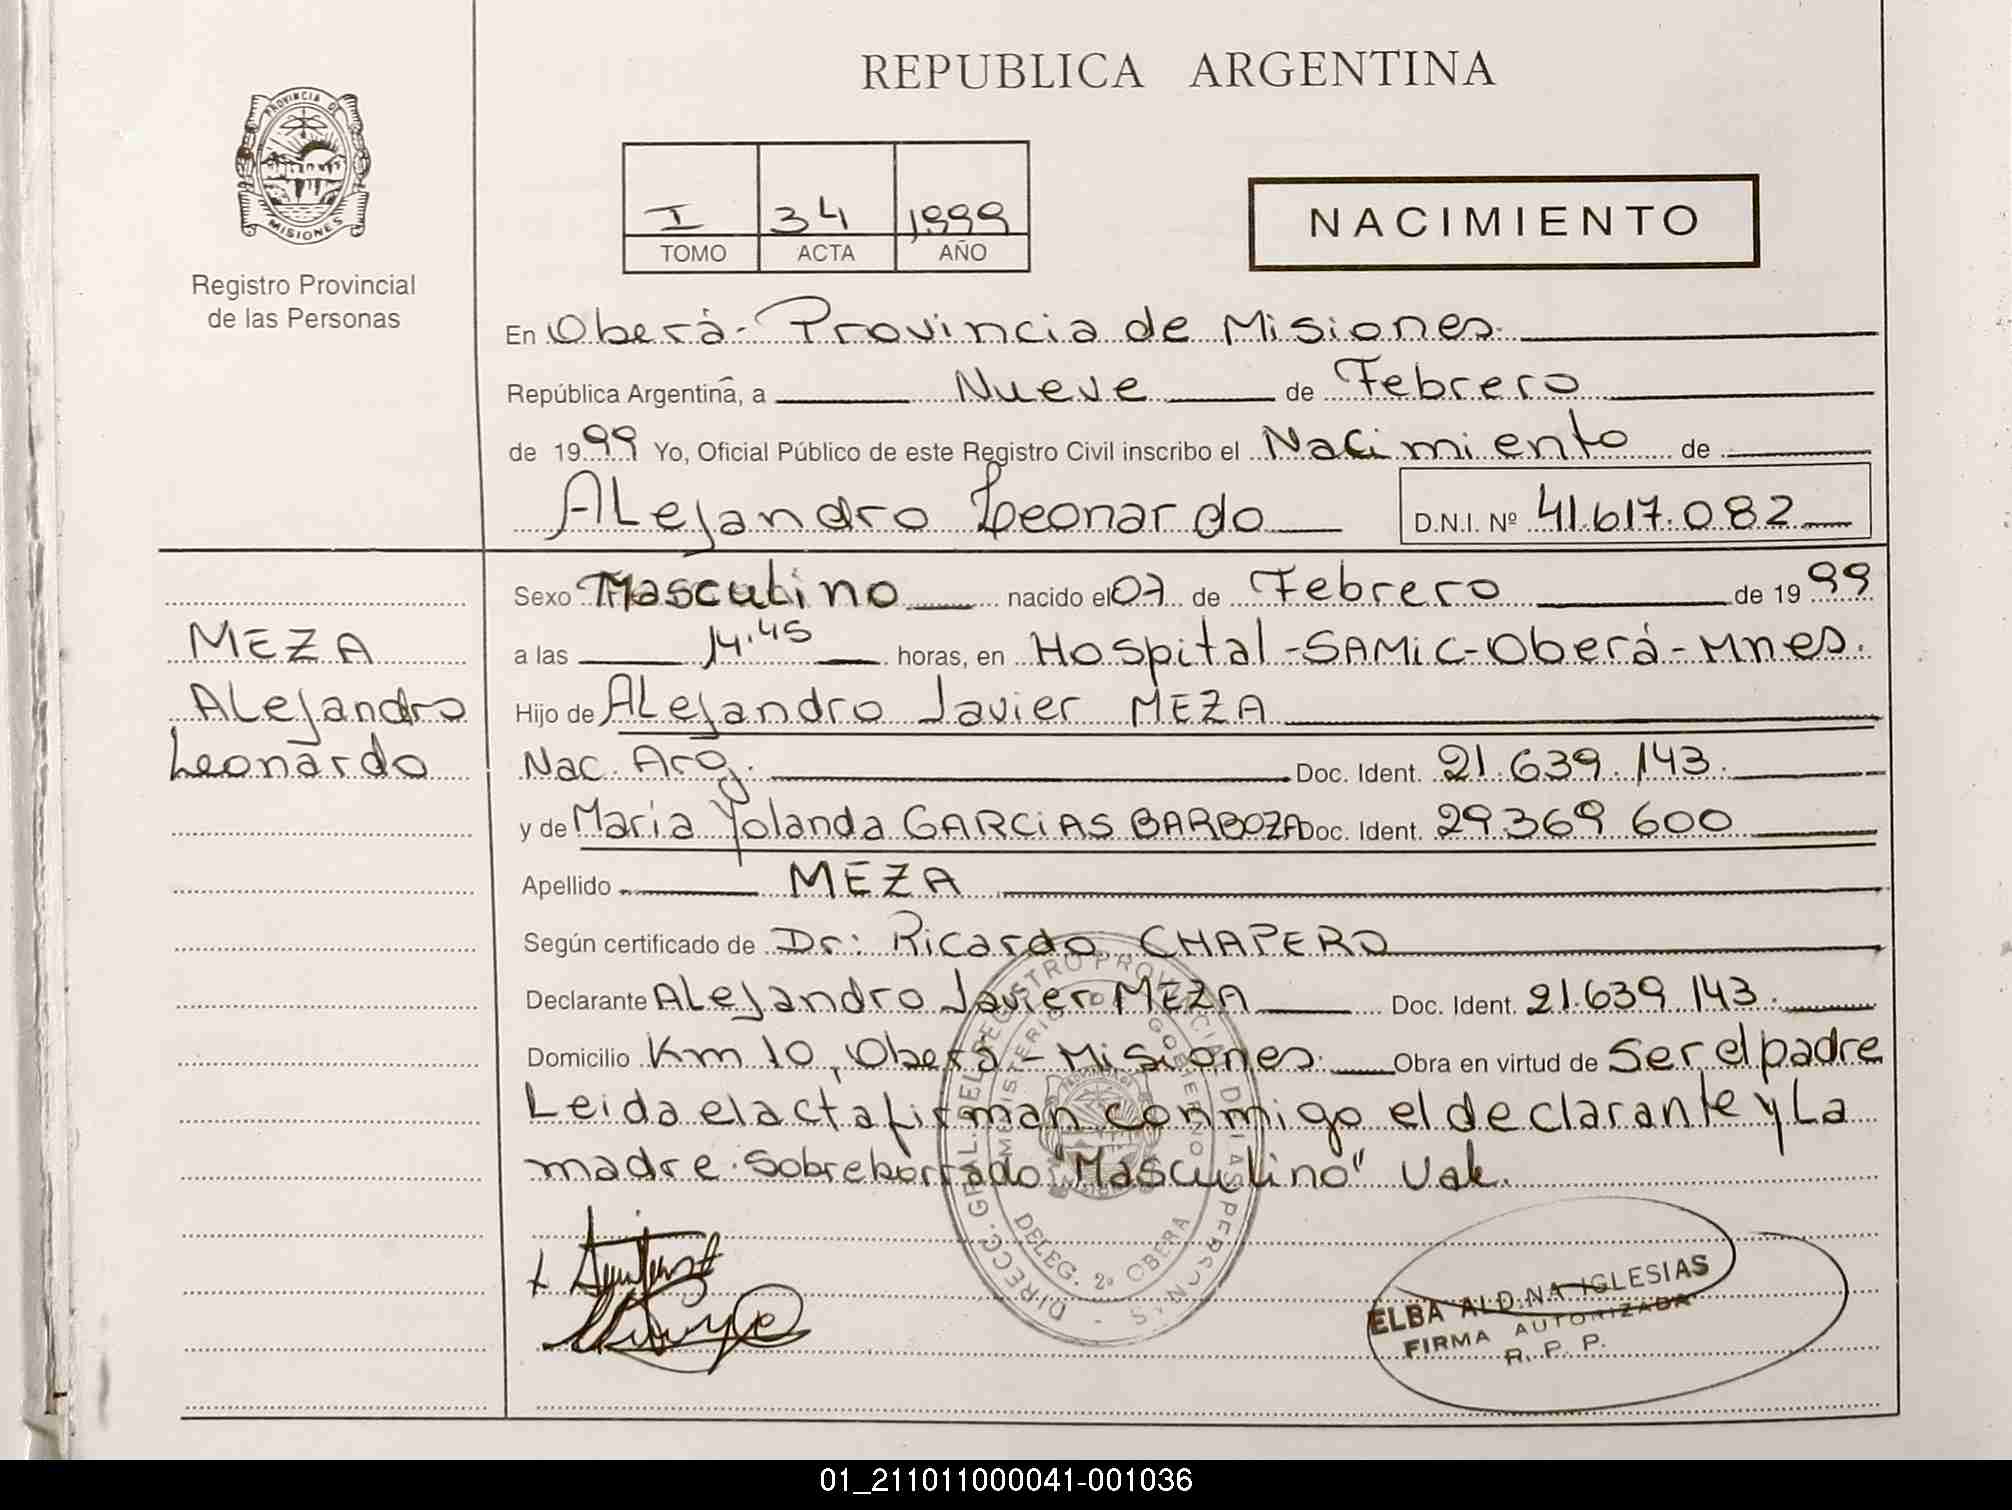 REPUBLICA ARGENTINA
PROVINCIA DE
MISIONES
Registro Provincial
de las Personas
I 34 1999
TOMO ACTA AÑO
NACIMIENTO
En Oberá - Provincia de Misiones.
República Argentina, a Nueve de Febrero
de 1999 Yo, Oficial Público de este Registro Civil inscribo el Nacimiento de
Alejandro Leonardo D.N.I. Nº 41.617.082
Sexo Masculino nacido el 07 de Febrero de 1999
MEZA
Alejandro
Leonardo
a las 14.45 horas, en Hospital - SAMiC - Oberá - Mnes.
Hijo de Alejandro Javier MEZA
Nac. Arg. Doc. Ident. 21.639.143.
y de Maria Yolanda GARCiAS BARBOZA Doc. Ident. 29.369.600
Apellido MEZA
Según certificado de Dr: Ricardo CHAPERO
Declarante Alejandro Javier MEZA Doc. Ident. 21.639.143.
Domicilio Km 10, Oberá - Misiones. Obra en virtud de Ser el padre
Leida el acta firman conmigo el declarante y La
madre. Sobreborrado "Masculino" Vale.
DIRECC. GRAL. DEL REGISTRO PROVINCIAL DE LAS PERSONAS
MINISTERIO DE GOBIERNO
DELEG. 2ª OBERA
ELBA ALDINA IGLESIAS
FIRMA AUTORIZADA
R. P. P.
01_211011000041-001036